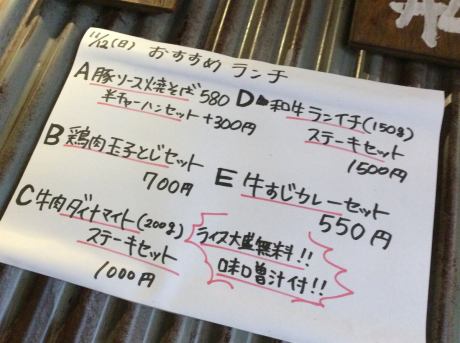 11/12(日) おすすめランチ
A 豚ソース焼そば 580
半チャーハンセット +300円
B 鶏肉玉子とじセット
700円
C 牛肉ダイナマイト(200g)
ステーキセット
1000円
D 和牛ランイチ(150g)
ステーキセット
1500円
E 牛すじカレーセット
550円
ライス大盛無料!!
味噌汁付!!